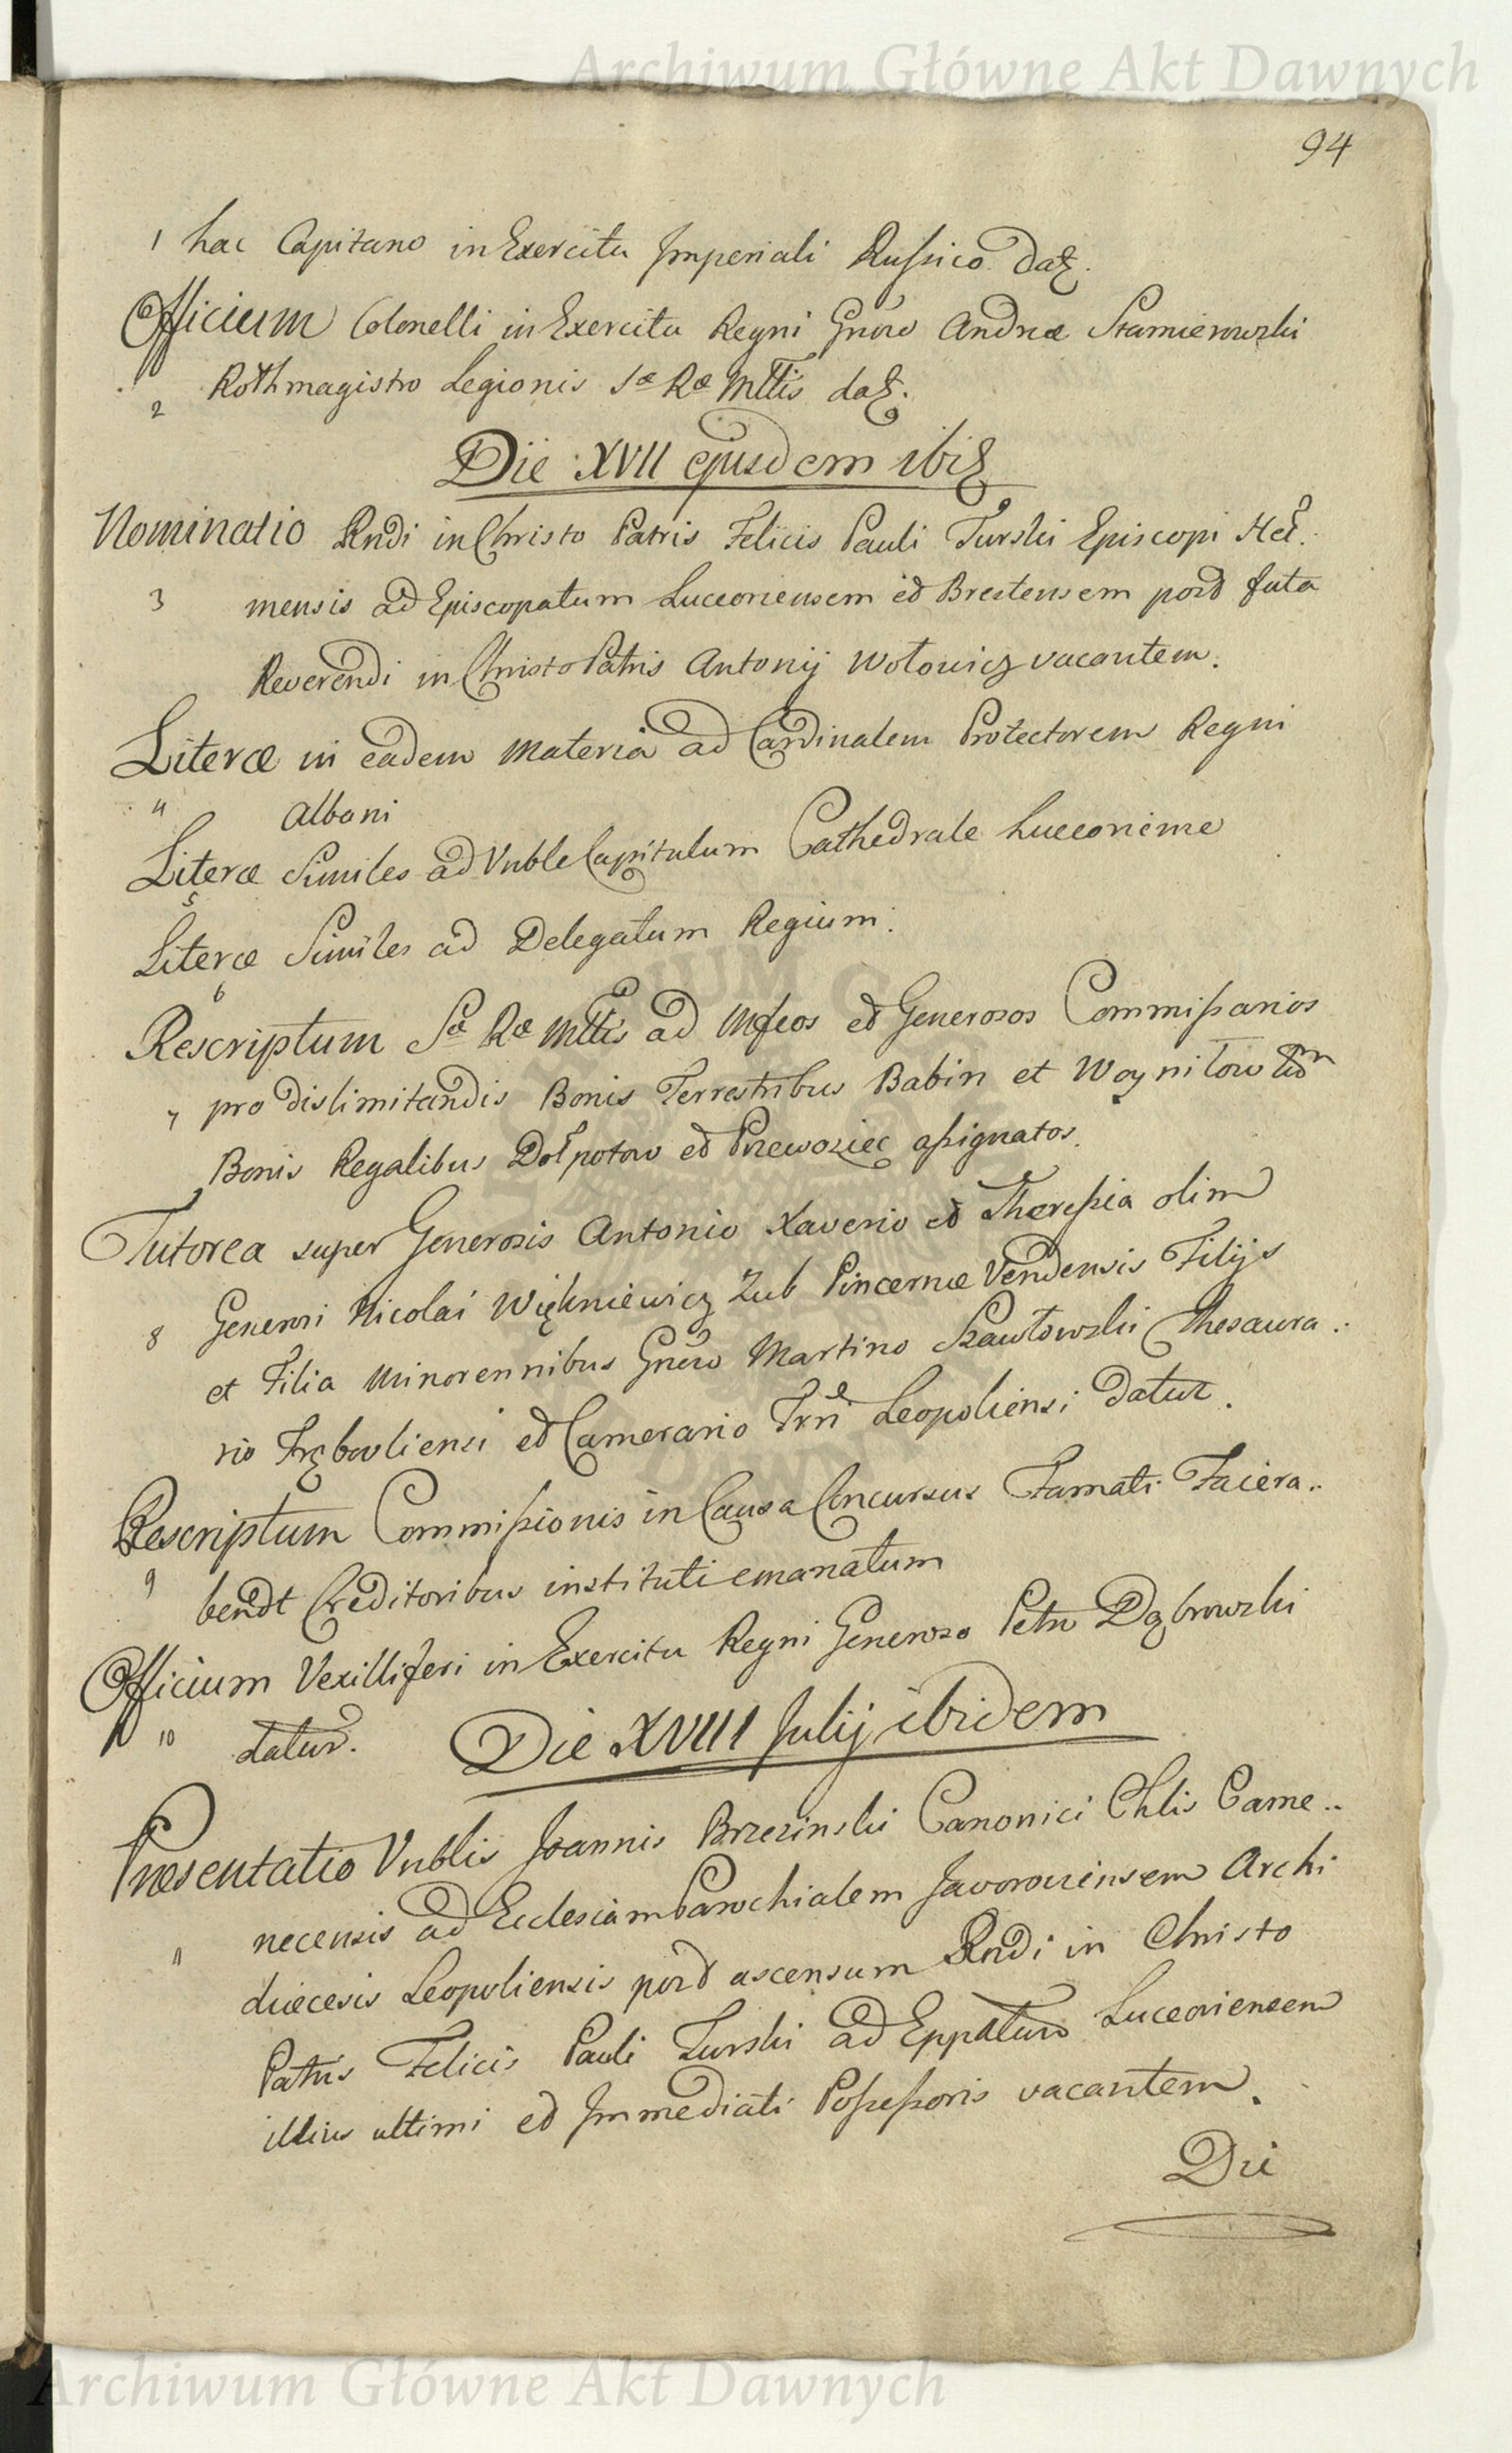 Archiwum Główne Akt Dawnych
94
1 hac Capitano in Exercitu Imperiali Russico Datʒ.
Officium Colonelli in Exercitu Regni Gnõso Andreæ Stamierowski
2 Rothmagistro Legionis Sæ Ræ Mttis datʒ.
Die XVII ejusdem ibiʒ
Nominatio Rndi in Christo Patris Felicis Pauli Turski Episcopi Heł..
3 mensis ad Episcopatum Luceoriensem et Brestensem post fata
Reverendi in Christo Patris Antonij Wołowicz vacantem.
Literæ in eadem materia ad Cardinalem Protectorem Regni
4 Albani
Literæ Similes ad Vnble Capitulum Cathedrale Luceoriense
5
Literæ Similes ad Delegatum Regium.
6
Rescriptum Sæ Ræ Mttis ad Mfcos et Generosos Commissarios
7 pro dislimitandis Bonis Terrestribus Babin et Woyniłow
Bonis Regalibus Dołpotow et Przewoziec assignatos.
Tutorea super Generosis Antonio Xaverio et Theressia olim
8 Generosi Nicolai Więkniewicz Zub Pincernæ Vendensis Filijs
et Filia minorennibus Gnõso Martino Szawłowski Thesaura..
rio Trębowliensi et Camerario Trri Leopoliensi Datur.
Rescriptum Commissionis in Causa Concursus Famati Faciera..
9 bendt Creditoribus instituti emanatum
Officium Vexilliferi in Exercitu Regni Generoso Petro Dąbrowski
10 datur.
Die XVIII Julij ibidem
Præsentatio Vnblis Joannis Brzezinski Canonici Chlis Came..
11 necensis ad Ecclesiam Parochialem Javoroviensem Archi
diœcesis Leopoliensis post ascensum Rndi in Christo
Patris Felicis Pauli Turski ad Eppatum Luceoriensem
illius ultimi et Immediati Possessoris vacantem.
Die
Archiwum Główne Akt Dawnych